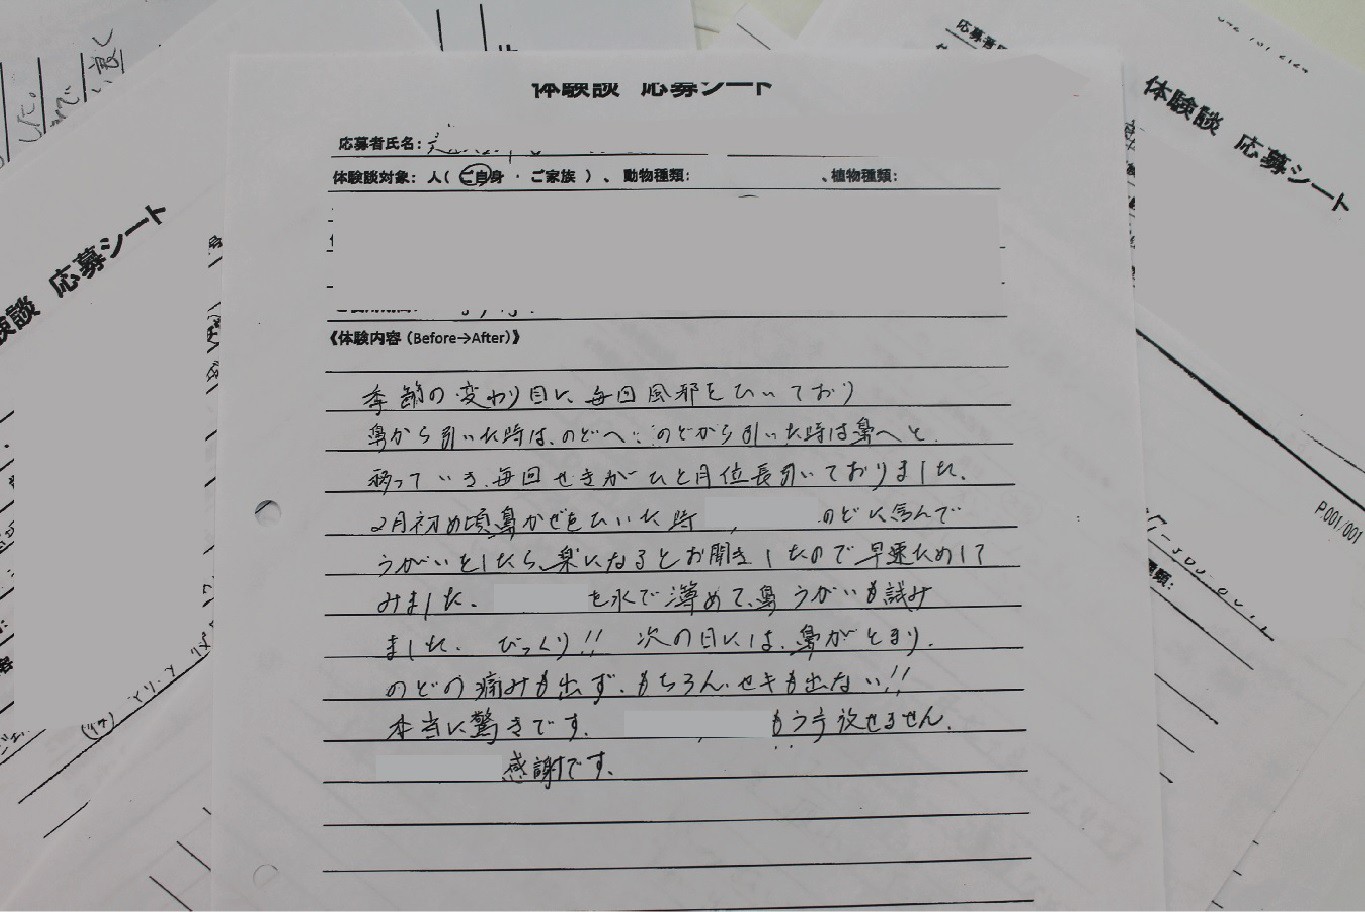 体験談 応募シート
応募者氏名:
体験談対象: 人( ご自身 ・ ご家族 )、動物種類: 、植物種類:
《体験内容(Before→After)》
季節の変わり目に、毎回風邪をひいており
鼻から引いた時は、のどへ、のどから引いた時は鼻へと、
移っていき、毎回せきがひと月位長引いておりました。
2月初め頃鼻かぜをひいた時 、 のどに含んで
うがいをしたら、楽になるとお聞きしたので早速ためして
みました。 を水で薄めて、鼻うがいも試み
ました。 びっくり!! 次の日には、鼻がとまり、
のどの痛みも出ず、もちろん、セキも出ない!!
本当に驚きです。 もう手放せません。
感謝です。
体験談 応募シート
験談 応募シート
P001/001